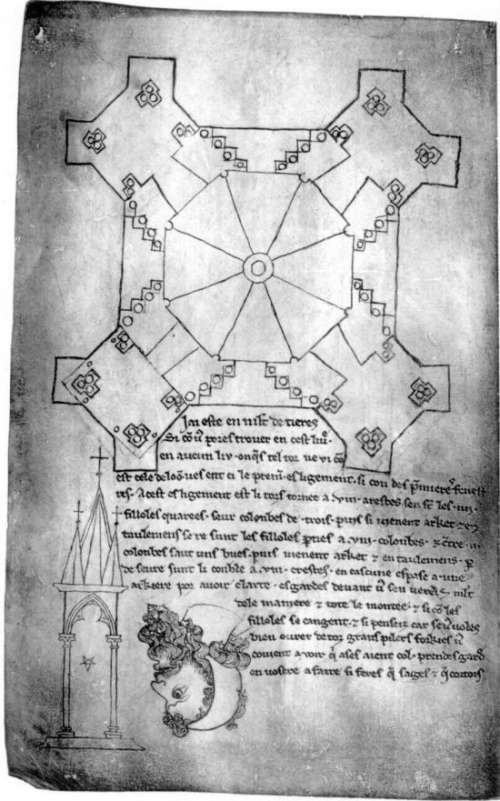 Jai este en mlt de tieres
Si cō v̄ pores trover en cest liu͛.
en aucun liu onq̄s tel tor ne vi cō
est cele de loō. ves ent ci le prem͛. esligement. si con des p̄mieres fenest
res. A cest esligement est li tors tornee a .viii. arestes. sen st̄ les .iiii.
filloles quarees. seur colonbes de .trois. puis si vienent arket et en
taulemens se re sunt les filloles pties a .viii. colonbes. et ētre .ii.
colonbes saut uns bues. puis vienent arket et entaulemens. p
de seure sunt li conble a .viii. crestes. en cascune espase a une
arkiere por avoir clarte. esgardes devant v̄ sen veres mlt
dele maniere et tote le montee. et si cō les
filloles se cangent. et si penseiz car se v̄ voles
bien ovrer de toz grans pilers forkies v̄
covient avoir q̄ ases aient col. prendes gard
en vostre afaire si feres q̄ sages et q̄ cortois